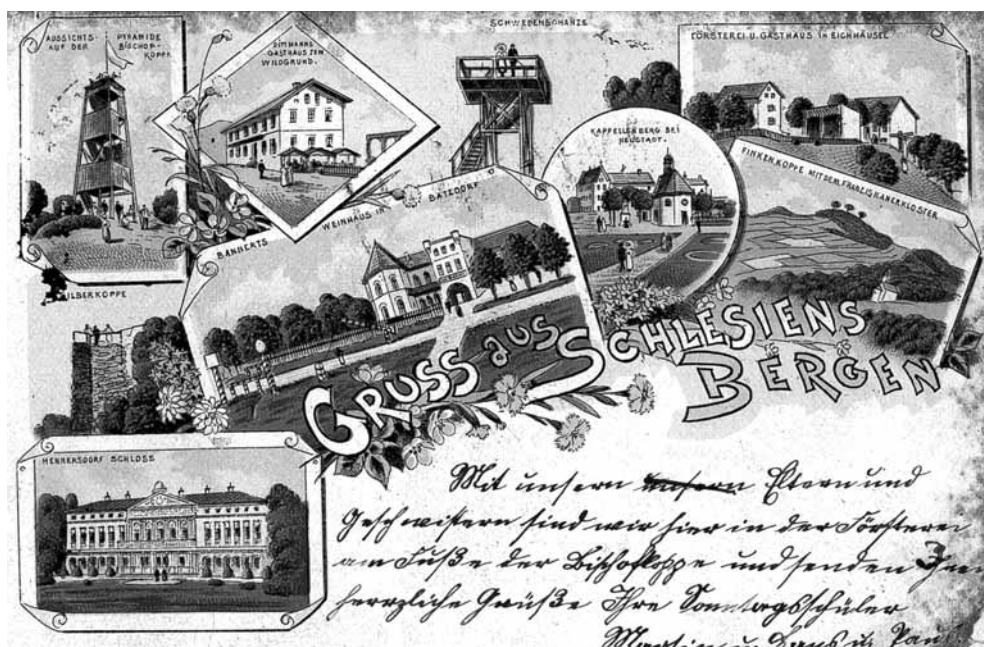 AUSSICHTS- PYRAMIDE
AUF DER BISCHOF-
KOPPE
GASTHAUS ZUM
WILDGRUND.
SCHWEDENSCHANZE
FÖRSTEREI U. GASTHAUS IN EICHHÄUSEL
KAPPELLENBERG BEI
NEUSTADT.
FINKENKOPPE MIT DEM FRANZISKANERKLOSTER
BANNERTS WEINHAUS IN BATZDORF
SILBERKOPPE
GRUSS aus SCHLESIENS
BERGEN
HENNERSDORF SCHLOSS
Mit unsern unsern Eltern und
Geschwistern sind wir hier in der Försterei
am Fuße der Bischofkoppe und senden Ihnen
herzliche Grüße Ihre Sonntagsschüler
Martin u. Hans u. Paul.